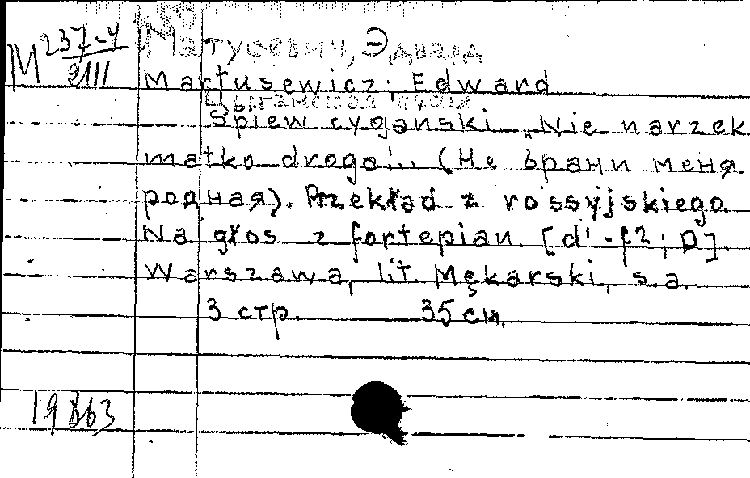 М 237-4
Матусевич, Эдвард
VIII
Martusewicz, Edward
Цыганская
Śpiew cygański „Nie narzek
matko droga!.. (Не брани меня
родная). Przekład z rossyjskiego
Na głos z fortepian. [d¹-f2; D].
Warszawa, lit. Mękarski, s.a.
3 стр. 35 см.
19863